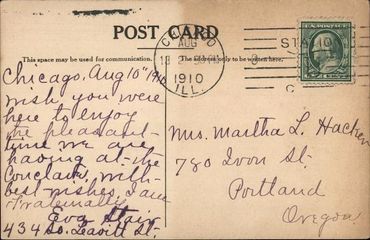 POST CARD
This space may be used for communication.
The address only to be written here.
AUG
1910
ILL.
STA.
Chicago, Aug 10" 1910
wish you were
here to enjoy
the pleasant
time we are
having at the
Conclave, with
best wishes, I am
fraternally
Eva
434 So. Leavitt St.
Mrs. Martha L. Hacken
780 Ivon St.
Portland
Oregon